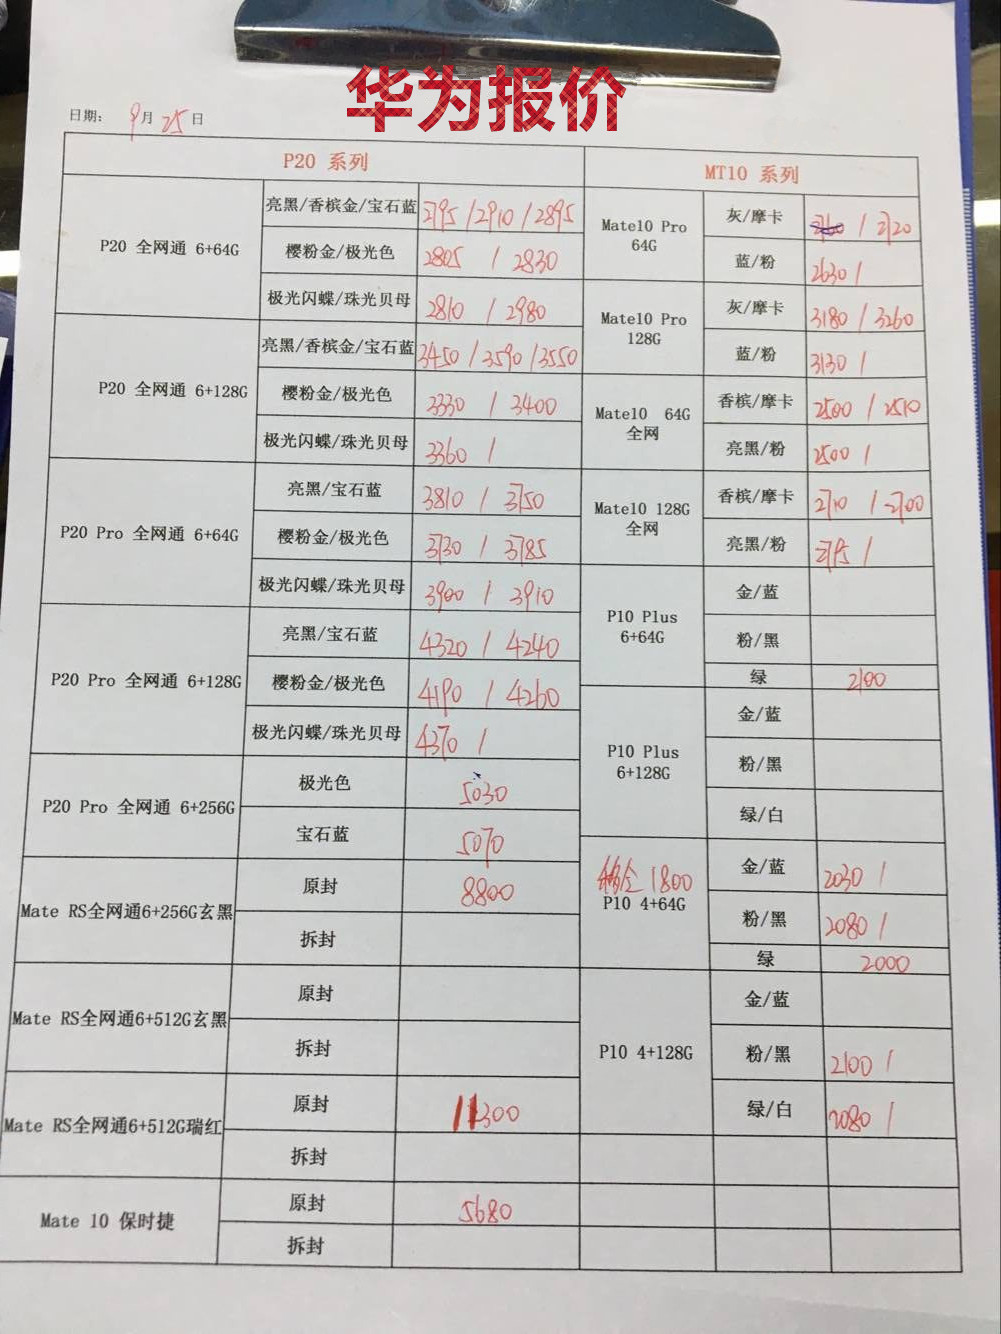 华为报价
日期： 9月25日
P20 系列
P20 全网通 6+64G
亮黑/香槟金/宝石蓝 2795 / 2910 / 2895
樱粉金/极光色 2805 / 2830
极光闪蝶/珠光贝母 2810 / 2980
P20 全网通 6+128G
亮黑/香槟金/宝石蓝 3450 / 3590 / 3550
樱粉金/极光色 3330 / 3400
极光闪蝶/珠光贝母 3360 /
P20 Pro 全网通 6+64G
亮黑/宝石蓝 3810 / 3750
樱粉金/极光色 3730 / 3785
极光闪蝶/珠光贝母 3900 / 3910
P20 Pro 全网通 6+128G
亮黑/宝石蓝 4320 / 4240
樱粉金/极光色 4190 / 4260
极光闪蝶/珠光贝母 4370 /
P20 Pro 全网通 6+256G
极光色 5030
宝石蓝 5070
Mate RS全网通6+256G玄黑
原封 8800
拆封
Mate RS全网通6+512G玄黑
原封
拆封
Mate RS全网通6+512G瑞红
原封 11300
拆封
Mate 10 保时捷
原封 5680
拆封
MT10 系列
Mate10 Pro
64G
灰/摩卡 / 2720
蓝/粉 2630 /
Mate10 Pro
128G
灰/摩卡 3180 / 3260
蓝/粉 3130 /
Mate10 64G
全网
香槟/摩卡 2500 / 2510
亮黑/粉 2500 /
Mate10 128G
全网
香槟/摩卡 2710 / 2700
亮黑/粉 2715 /
P10 Plus
6+64G
金/蓝
粉/黑
绿 2100
P10 Plus
6+128G
金/蓝
粉/黑
绿/白
1800
P10 4+64G
金/蓝 2030 /
粉/黑 2080 /
绿 2000
P10 4+128G
金/蓝
粉/黑 2100 /
绿/白 2080 /